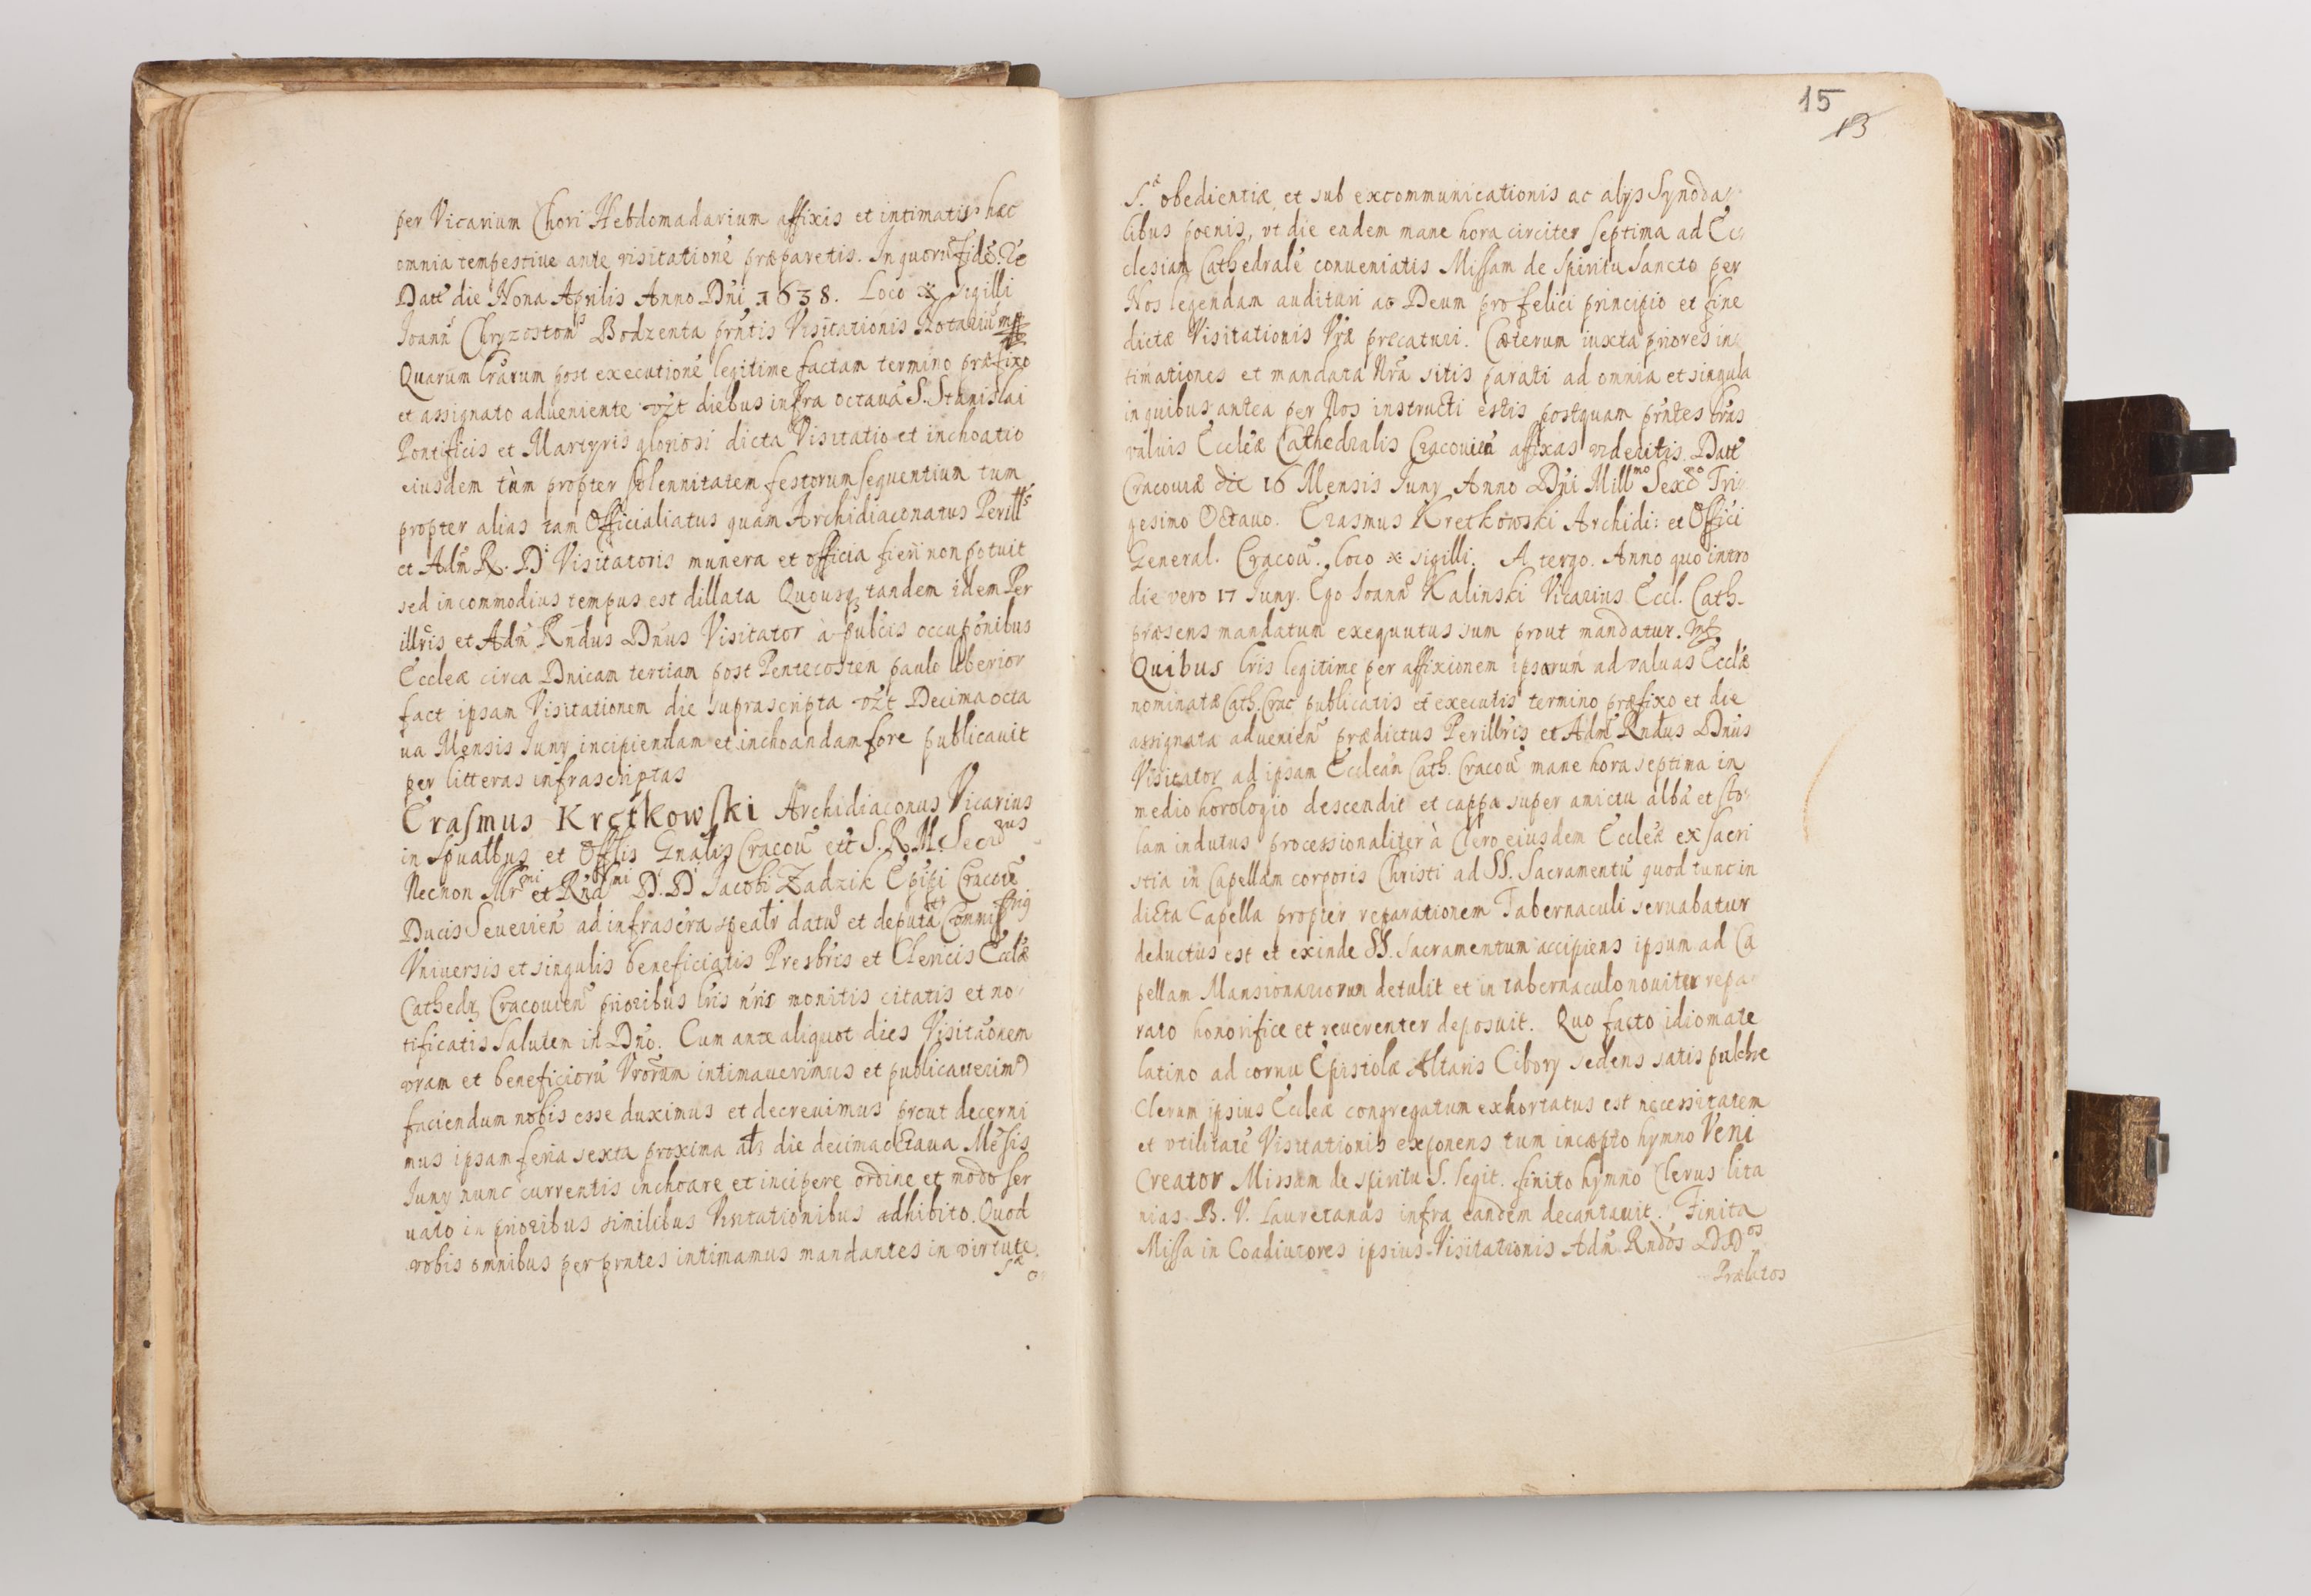 per Vicarium Chori Hebdomadarium affixis et intimatis hæc
omnia tempestiue ante visitationē præparetis. In quorū fidē. &c
Datt̃ die Nona Aprilis Anno Dn̄i 1638. Loco ※ sigilli
Joann̄ Chryzostom̃s Bodzenta prn̄tis Visitationis Notariũ mp
Quarum lr̄arum post executionē legitime factam termino præfixo
et assignato adueniente vzt diebus infra octauā S. Stanislai
Pontificis et Martyris gloriosi dicta Visitatio et inchoatio
eiusdem tùm propter solennitatem festorum sequentium tum
propter alias tam Officialiatus quàm Archidiaconatus Perillꝰs
et Adm̄ R. Dī Visitatoris munera et officia fieri non potuit
sed in commodius tempus est dillata Quousq tandem idem Per
illr̄is et Adm̄ Rn̄dus Dn̄us Visitator à publcis occupōnibus
Eccleæ circa Dnicam tertiam post Pentecosten paulo liberior
fact ipsam Visitationem die suprascripta vzt Decima octa
ua Mensis Juny incipiendam et inchoandam fore publicauit
per litteras infrascriptas
Erasmus Kretkowski Archidiaconus Vicarius
in Sp̄ualbus et Offlis Gn̄alis Cracoū ett S. R. M. Secrius
Necnon Illr̄mi et Rn̄dmi D. D Jacobi Zadzik Ep̄ipi Cracoū
Ducis Seuerien̄ ad infrascra spealr datũ et deputatꝰ Commissrig
Vniuersis et singulis beneficiatis Presbr̄is et Clericis Ecclæ
Cathedr Cracouien̄ prioribus lr̄is nr̄is monitis citatis et no
tificatis Salutem in Dn̄o. Cum ante aliquot dies Visitāonem
vram et beneficiorū Vrōrum intimauerimus et publicauerimꝰ
faciendum nobis esse duximus et decreuimus prout decerni
mus ipsam feria sexta proxima als die decima octaua Mēsis
Juny nunc currentis inchoare et incipere ordine et modo ser
uato in prioribus similibus Visitationibus adhibito. Quod
vobis omnibus per prntes intimamus mandantes in virtute
Sæ o
15
13
S.æ obedientiæ et sub excommunicationis ac alys Synoda
libus poenis, vt die eadem mane hora circiter septima ad Ec
clesiam Cathedralē conueniatis Missam de Spiritu Sancto per
Nos legendam audituri ac Deum pro felici principio et fine
dictæ Visitationis Vr̄æ precaturi. Cæterum iuxta priores in
timationes et mandata Nr̄a sitis parati ad omnia et singula
in quibus antea per Nos instructi estis postquam prn̄tes lr̄as
valuis Eccleæ Cathedralis Cracouien̄ affixas videritis. Datt̃
Cracouiæ die 16 Mensis Juny Anno Dn̄i Millmo Sexco Tri
gesimo Octauo. Erasmus Kretkowski Archidi: et Offici
General. Cracoū. loco ※ sigilli. A tergo. Anno quo intro
die vero 17 Juny. Ego Joann̄ Kalinski Vicarius Eccl. Cath.
præsens mandatum exequutus sum prout mandatur. mp
Quibus lris legitime per affixionem ipsarum ad valuas Ecclæ
nominatæ Cath. Crac publicatis et executis termino præfixo et die
assignata aduenien̄ prædictus Perillr̄is et Adm̄ Rn̄dus Dn̄us
Visitator ad ipsam Eccleān Cath. Cracoū mane hora septima in
medio horologio descendit et cappa super amictu alba et sto
lam indutus processionaliter à Clero eiusdem Eccleæ ex sacri
stia in Capellam corporis Christi ad SS. Sacramentū quod tunc in
dicta Capella propter reparationem Tabernaculi seruabatur
deductus est et exinde SS. Sacramentum accipiens ipsum ad Ca
pellam Mansionariorum detulit et in tabernaculo nouiter repa
rato honorifice et reuerenter deposuit. Quo facto idiomate
latino ad cornu Epistolæ Altaris Cibory sedens satis pulchre
Clerum ipsius Eccleæ congregatum exhortatus est necessitatem
et vtilitatē Visitationis exponens tum incæpto hymno Veni
Creator Missam de Spiritu S. legit. finito hymno Clerus lita
nias B. V. Lauretanas infra eandem decantauit. Finita
Missa in Coadiutores ipsius Visitationis Adm̄ Rn̄dos DDos
Prælatos